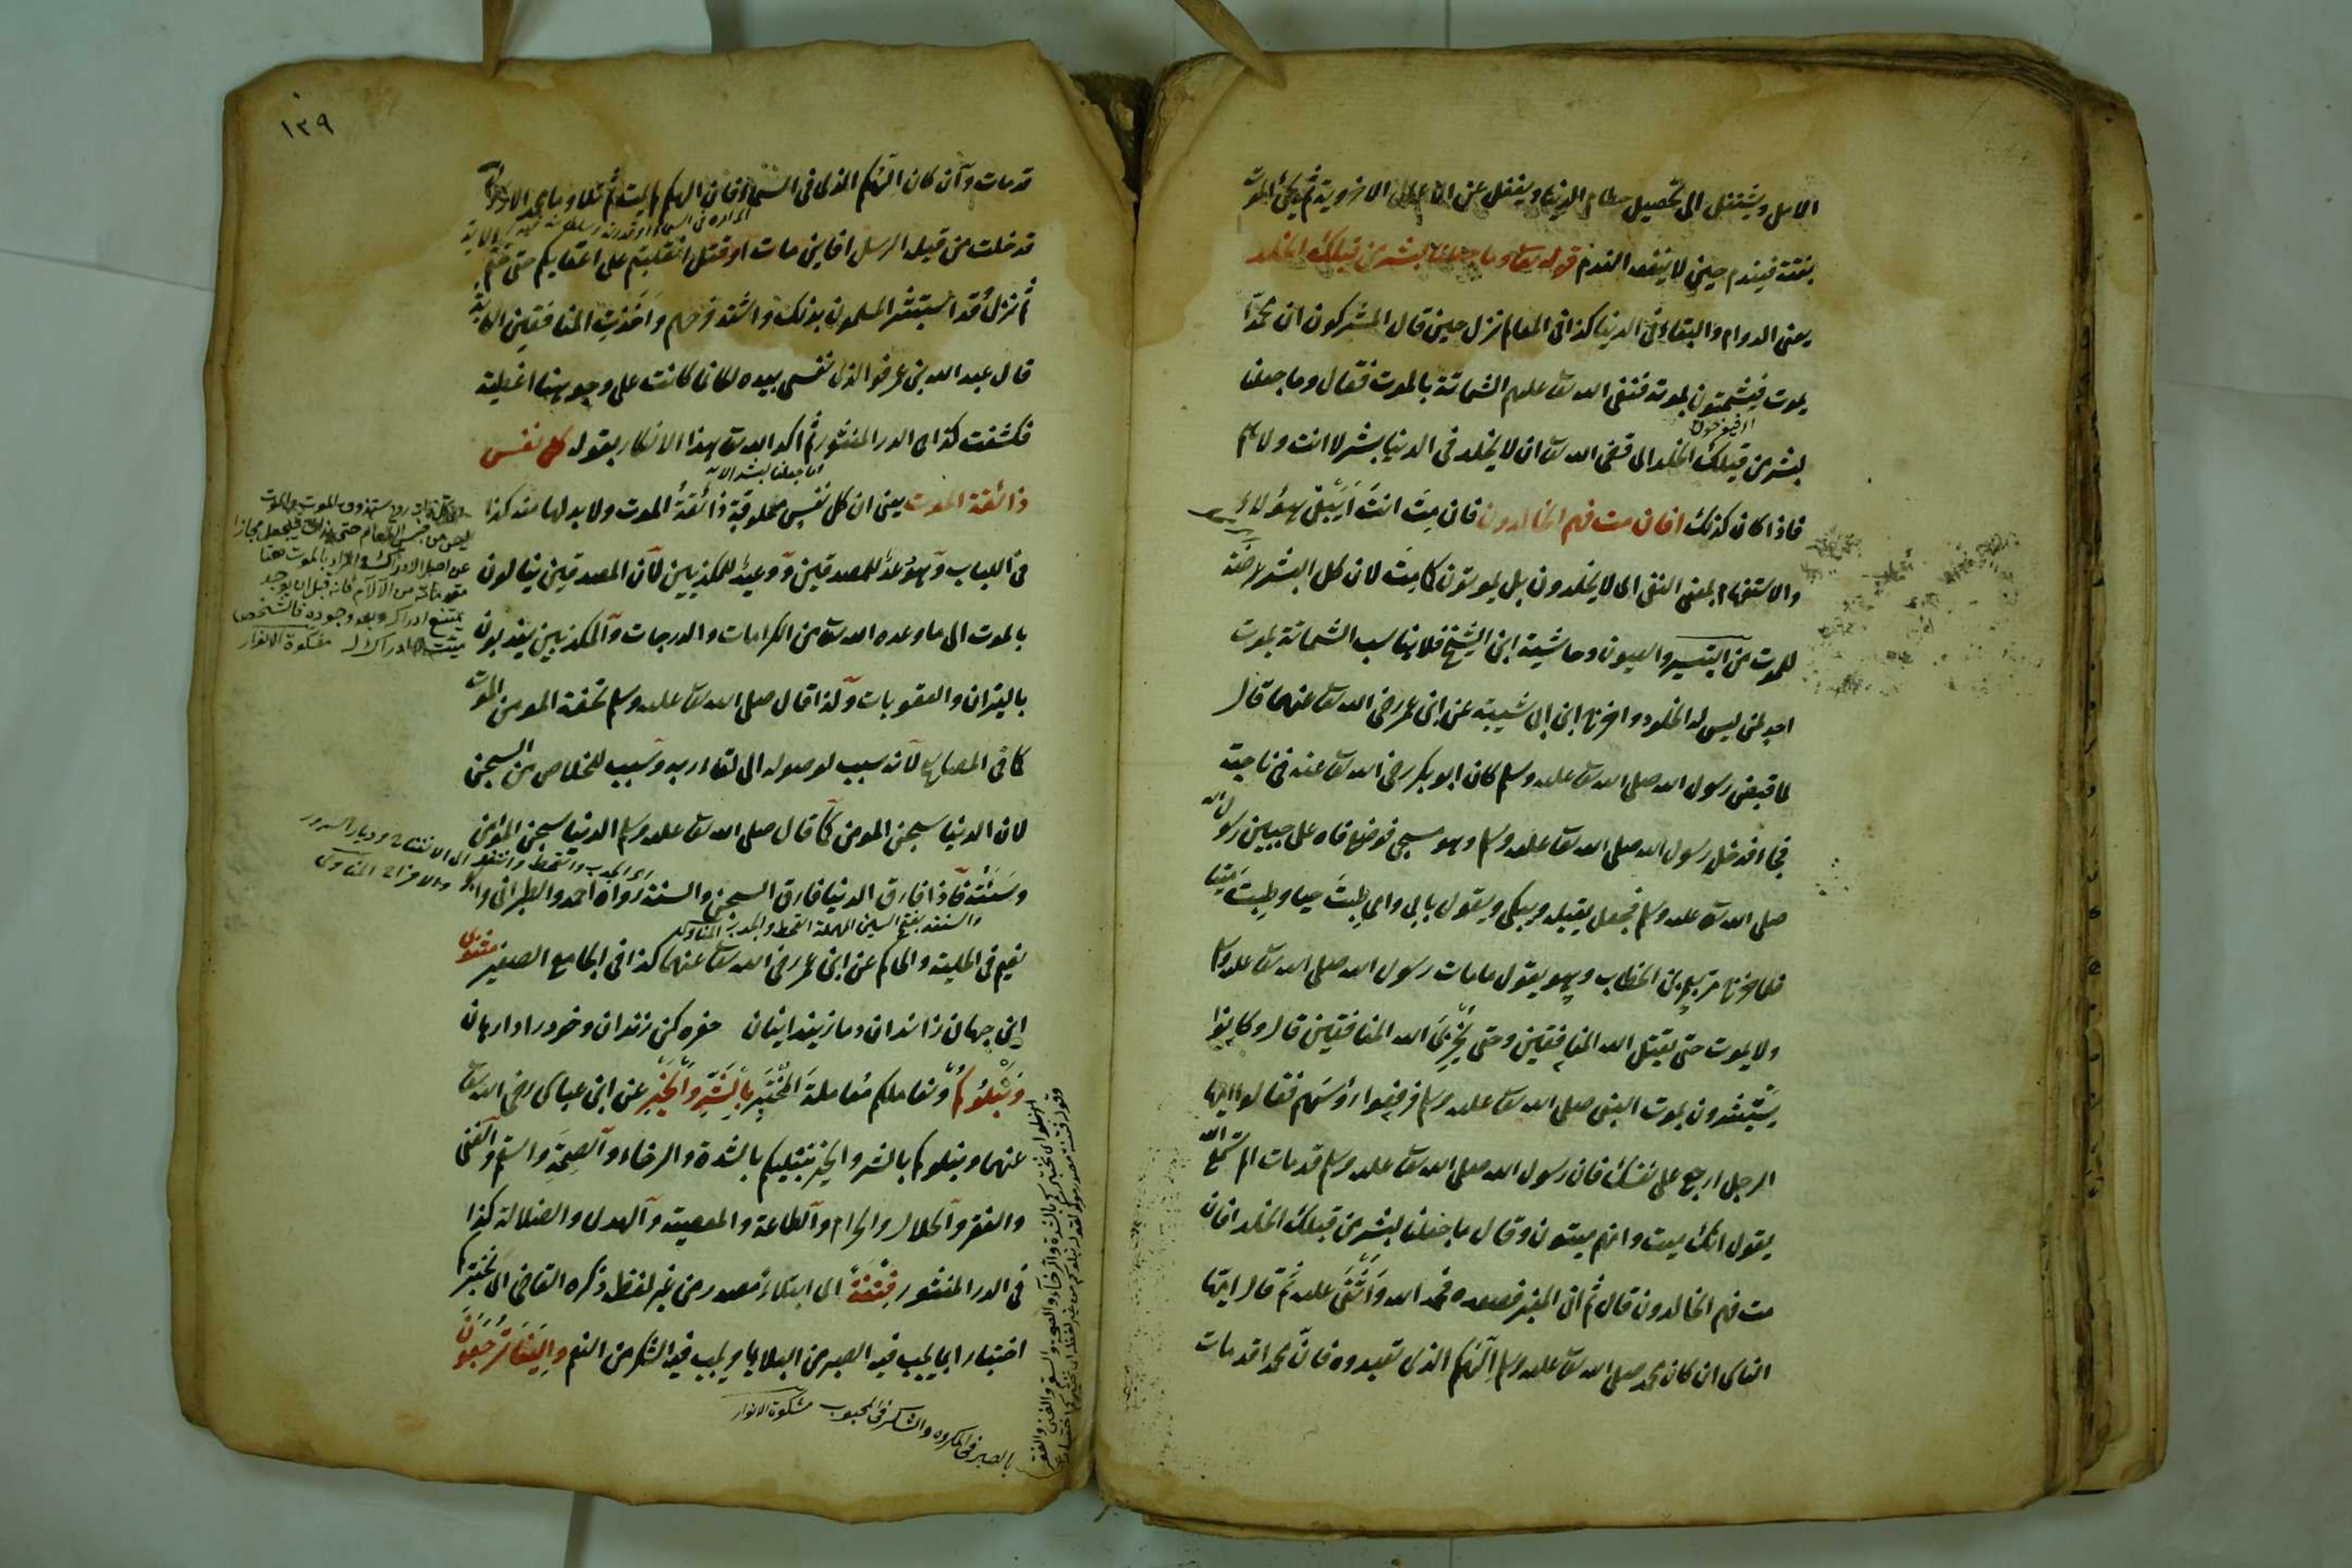 الامل ويشتغل الى تحصيل حطام الدنيا ويغفل عن الاعمال الاخروية ثم يجئ الموت
بغتة فيندم حين لا ينفعه الندم قوله تعا وما جعلنا لبشر من قبلك الخلد
يعنى الدوام والبقاء فى الدنيا كذا فى المعالم نزل حين قال المشركون ان محمدا
يموت فيشمتون بموته فنفى الله تعا عليهم الشماتة بالموت فقال وما جعلنا
لبشر من قبلك الخلد اى قضى الله تعا ان لا يخلد فى الدنيا بشر لا انت ولا هم
فاذا كان كذلك افان مت فهم الخالدون فان مت انت ايبقى هؤلاء
والاستفهام بمعنى النفى اى لا يخلدون بل يموتون كما مت لان كل البشر عرضة
للموت من التيسير والعيون وحاشية ابن الشيخ فلا يناسب الشماتة بموت
احد لمن ليس له الخلود واخرج ابن ابى شيبة عن ابن عمر رضى الله تعا عنهما قال
لما قبض رسول الله صلى الله تعا عليه وسلم كان ابو بكر رضى الله تعا عنه فى ناحية
فجاء فدخل رسول الله صلى الله تعا عليه وسلم وهو مسجى فوضع فاه على جبين رسول الله
صلى الله تعا عليه وسلم فجعل يقبله ويبكى ويقول بابى وامى طبت حيا وطبت ميتا
فلما خرج مر بعمر بن الخطاب وهو يقول ما مات رسول الله صلى الله تعا عليه وسلم
ولا يموت حتى يقتل الله المنافقين وحتى يخزى الله المنافقين قال وكانوا
يستبشرون بموت النبى صلى الله تعا عليه وسلم فرفعوا رؤسهم فقال ايها
الرجل اربع على نفسك فان رسول الله صلى الله تعا عليه وسلم قد مات الم تسمع الله
يقول انك ميت وانهم ميتون وقال ما جعلنا لبشر من قبلك الخلد افان
مت فهم الخالدون قال ثم اتى المنبر فصعده فحمد الله واثنى عليه ثم قال ايها
الناس ان كان محمد صلى الله تعا عليه وسلم الهكم الذى تعبدوه فان محمدا قد مات
١٣٩
قد مات وان كان الهكم الذى فى السماء فان الهكم لم يمت ثم تلا وما محمد الا رسول
قد خلت من قبله الرسل افاين مات او قتل انقلبتم على اعقابكم حتى ختم الاية
ثم نزل وقد استبشر المسلمون بذلك واشتد فرحهم واخذت المنافقين الكآبة
قال عبد الله بن عمر فو الذى نفسى بيده لكانما كانت على وجوهنا اغطية
فكشفت كذا فى الدر المنثور ثم اكد الله تعا هذا الانكار بقوله كل نفس
ذائقة الموت يعنى ان كل نفس مخلوقة ذائقة الموت ولا بد لها منه كذا
فى اللباب وهو وعد للمصدقين ووعيد للمكذبين لان المصدقين ينالون
بالموت الى ما وعده الله تعا من الكرامات والدرجات والمكذبين يعذبون
بالنيران والعقوبات ولذا قال صلى الله تعا عليه وسلم تحفة المومن الموت
كما فى المصابيح لانه سبب لوصوله الى لقاء ربه وسبب للخلاص من السجن
لان الدنيا سجن المومن كما قال صلى الله تعا عليه وسلم الدنيا سجن المؤمن
وسنته فاذا فارق الدنيا فارق السجن والسنة رواه احمد والطبرانى وابو
والسنة بفتح السين المهملة القحط والجدب المناوى
نعيم فى الحلية والحاكم عن ابن عمر رضى الله تعا عنهما كذا فى الجامع الصغير مثنوى
اين جهان زندان وما زندانيان حفره كن زندان وخود را وارهان
ونبلوكم ونعاملكم معاملة المختبر بالشر والخير عن ابن عباس رضى الله تعا
عنهما ونبلوكم بالشر والخير نبتليكم بالشدة والرخاء والصحة والسقم والغنى
والفقر والحلال والحرام والطاعة والمعصية والهدى والضلالة كذا
فى الدر المنثور فتنة اى ابتلاء مصدر من غير لفظه ذكره القاضى اى نختبركم
اختبارا بما يجب فيه الصبر من البلايا ويجب فيه الشكر من النعم والينا ترجعون
بالصبر فى المكروه والشكر فى المحبوب مشكوة الانوار